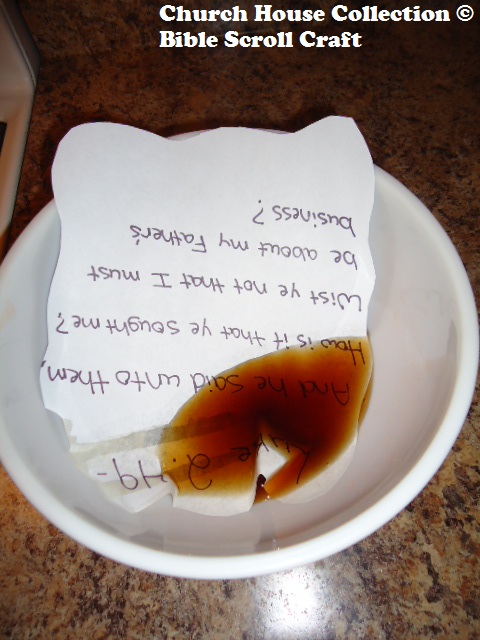 Church House Collection ©
Bible Scroll Craft
Luke 2:49-
And he said unto them,
How is it that ye sought me?
Wist ye not that I must
be about my Father's
business?